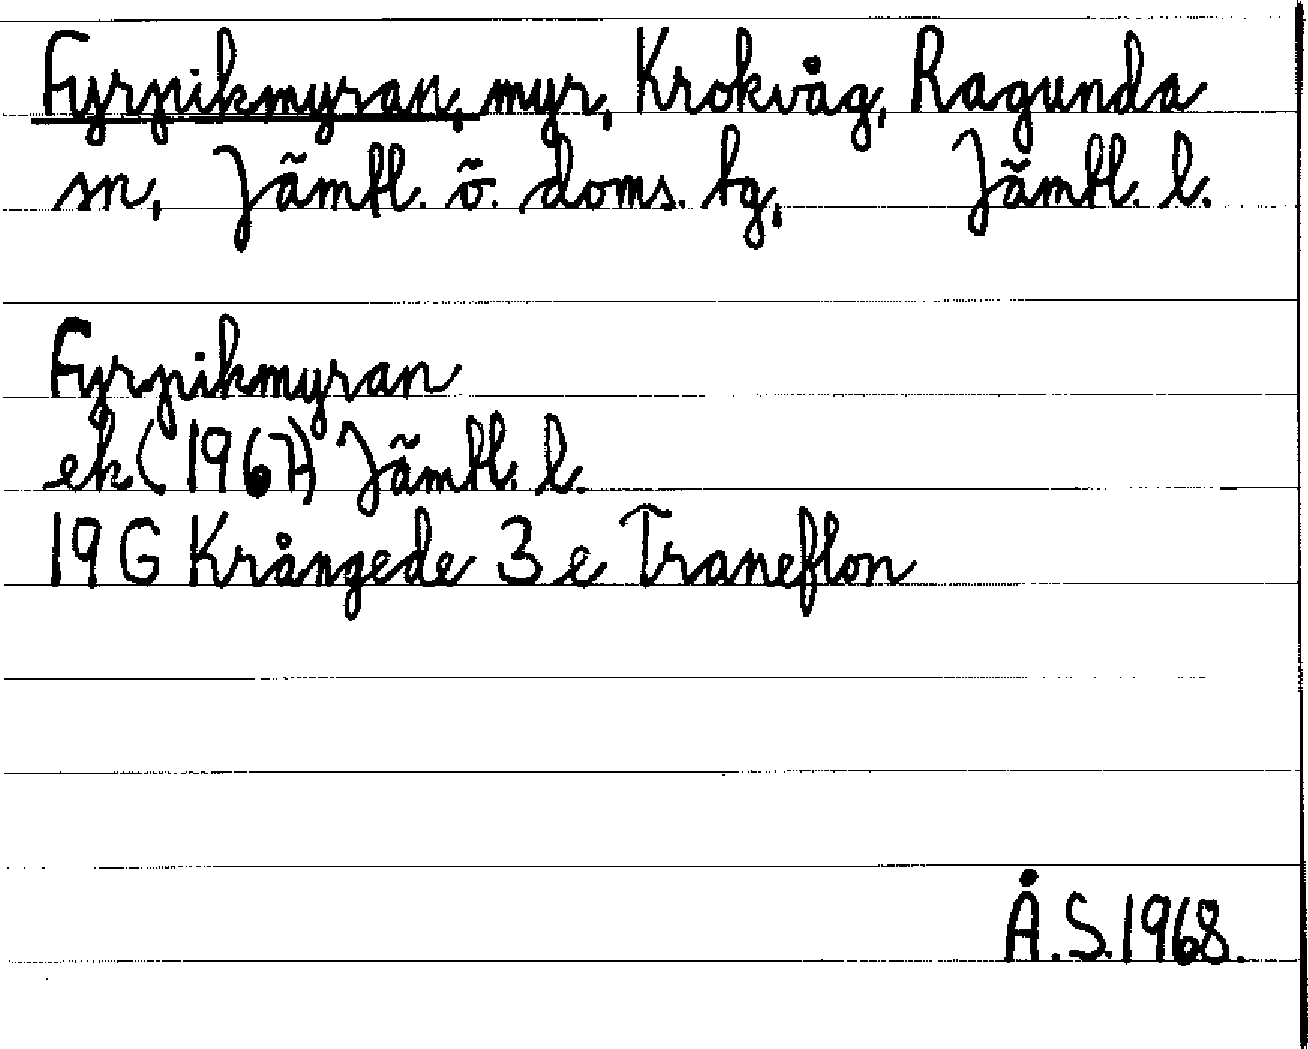 Fyrpikmyran, myr, Krokvåg, Ragunda
sn, Jämtl. ö. doms. bg, Jämtl. l.
Fyrpikmyran
ek (1967) Jämtl. l.
19 G Krångede 3 e Traneflon
Å.S. 1968.